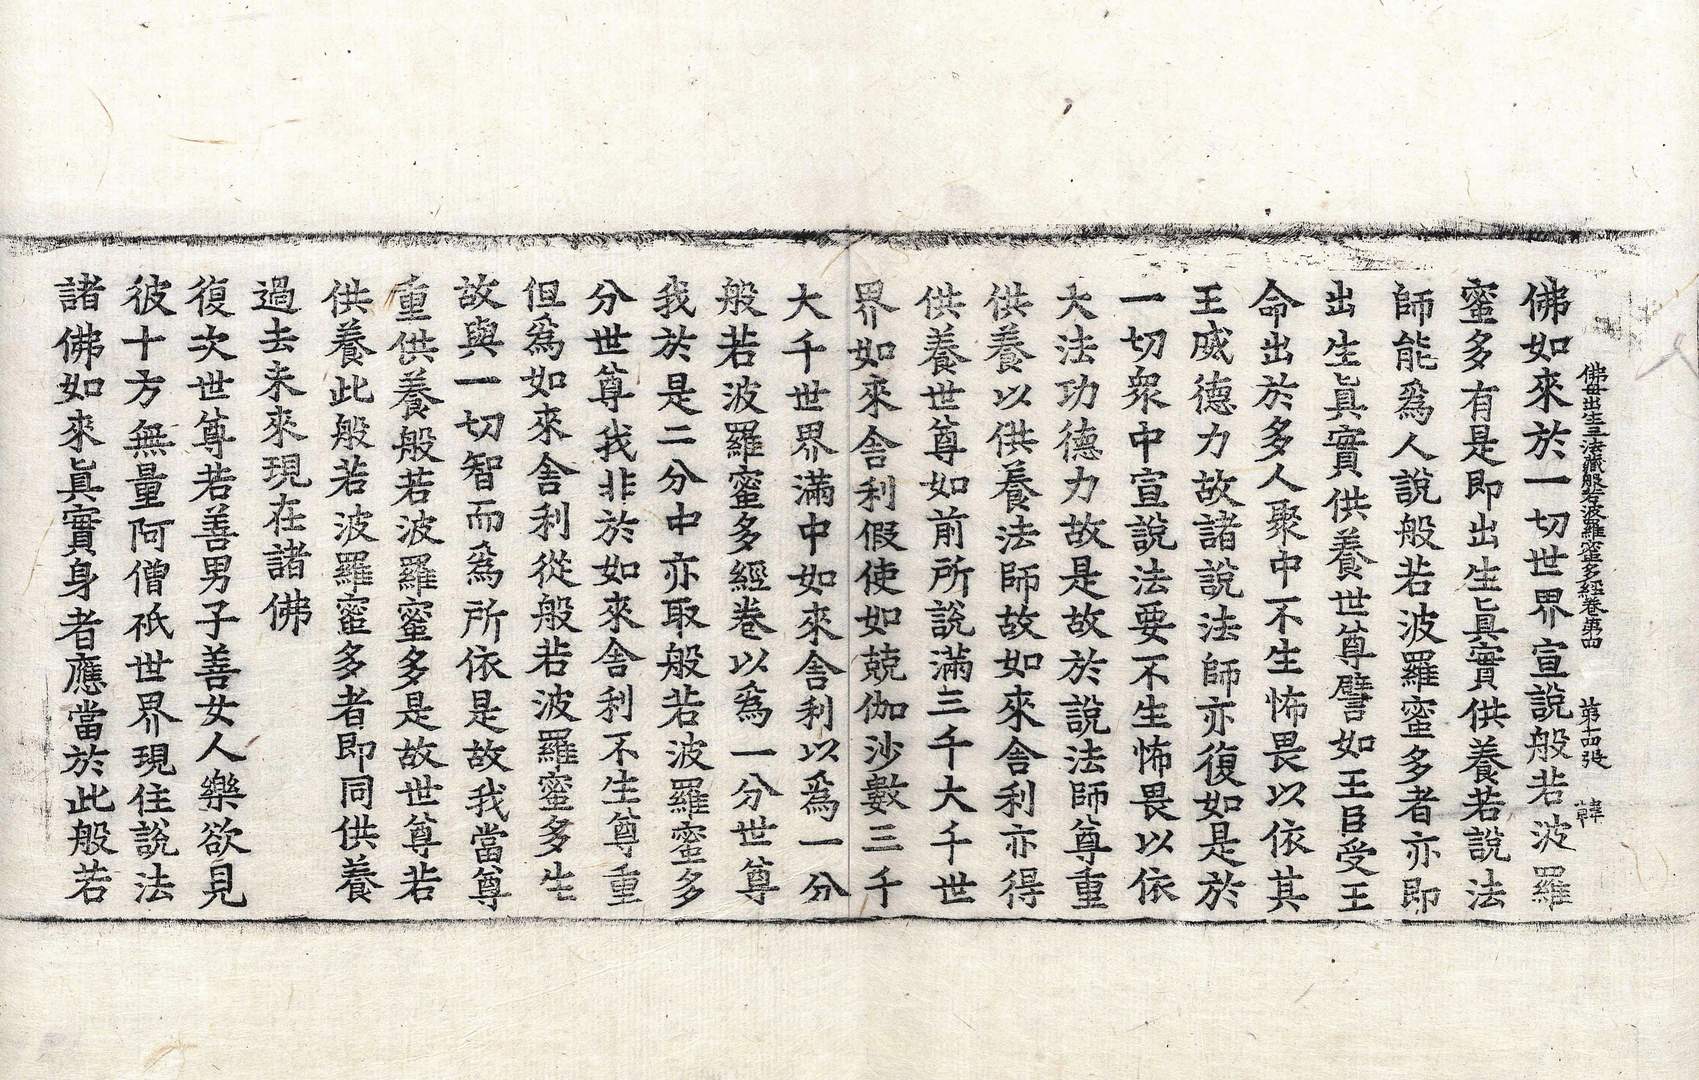 佛母出生三法藏般若波羅蜜多經卷第四 第十四張 韓
佛如來於一切世界宣說般若波羅
蜜多有是即出生眞實供養若說法
師能爲人說般若波羅蜜多者亦即
出生眞實供養世尊譬如王臣受王
命出於多人聚中不生怖畏以依其
王威德力故諸說法師亦復如是於
一切衆中宣說法要不生怖畏以依
大法功德力故是故於說法師尊重
供養以供養法師故如來舍利亦得
供養世尊如前所說滿三千大千世
界如來舍利假使如兢伽沙數三千
大千世界滿中如來舍利以爲一分
般若波羅蜜多經卷以爲一分世尊
我於是二分中亦取般若波羅蜜多
分世尊我非於如來舍利不生尊重
但爲如來舍利從般若波羅蜜多生
故與一切智而爲所依是故我當尊
重供養般若波羅蜜多是故世尊若
供養此般若波羅蜜多者即同供養
過去未來現在諸佛
復次世尊若善男子善女人樂欲見
彼十方無量阿僧祇世界現住說法
諸佛如來眞實身者應當於此般若